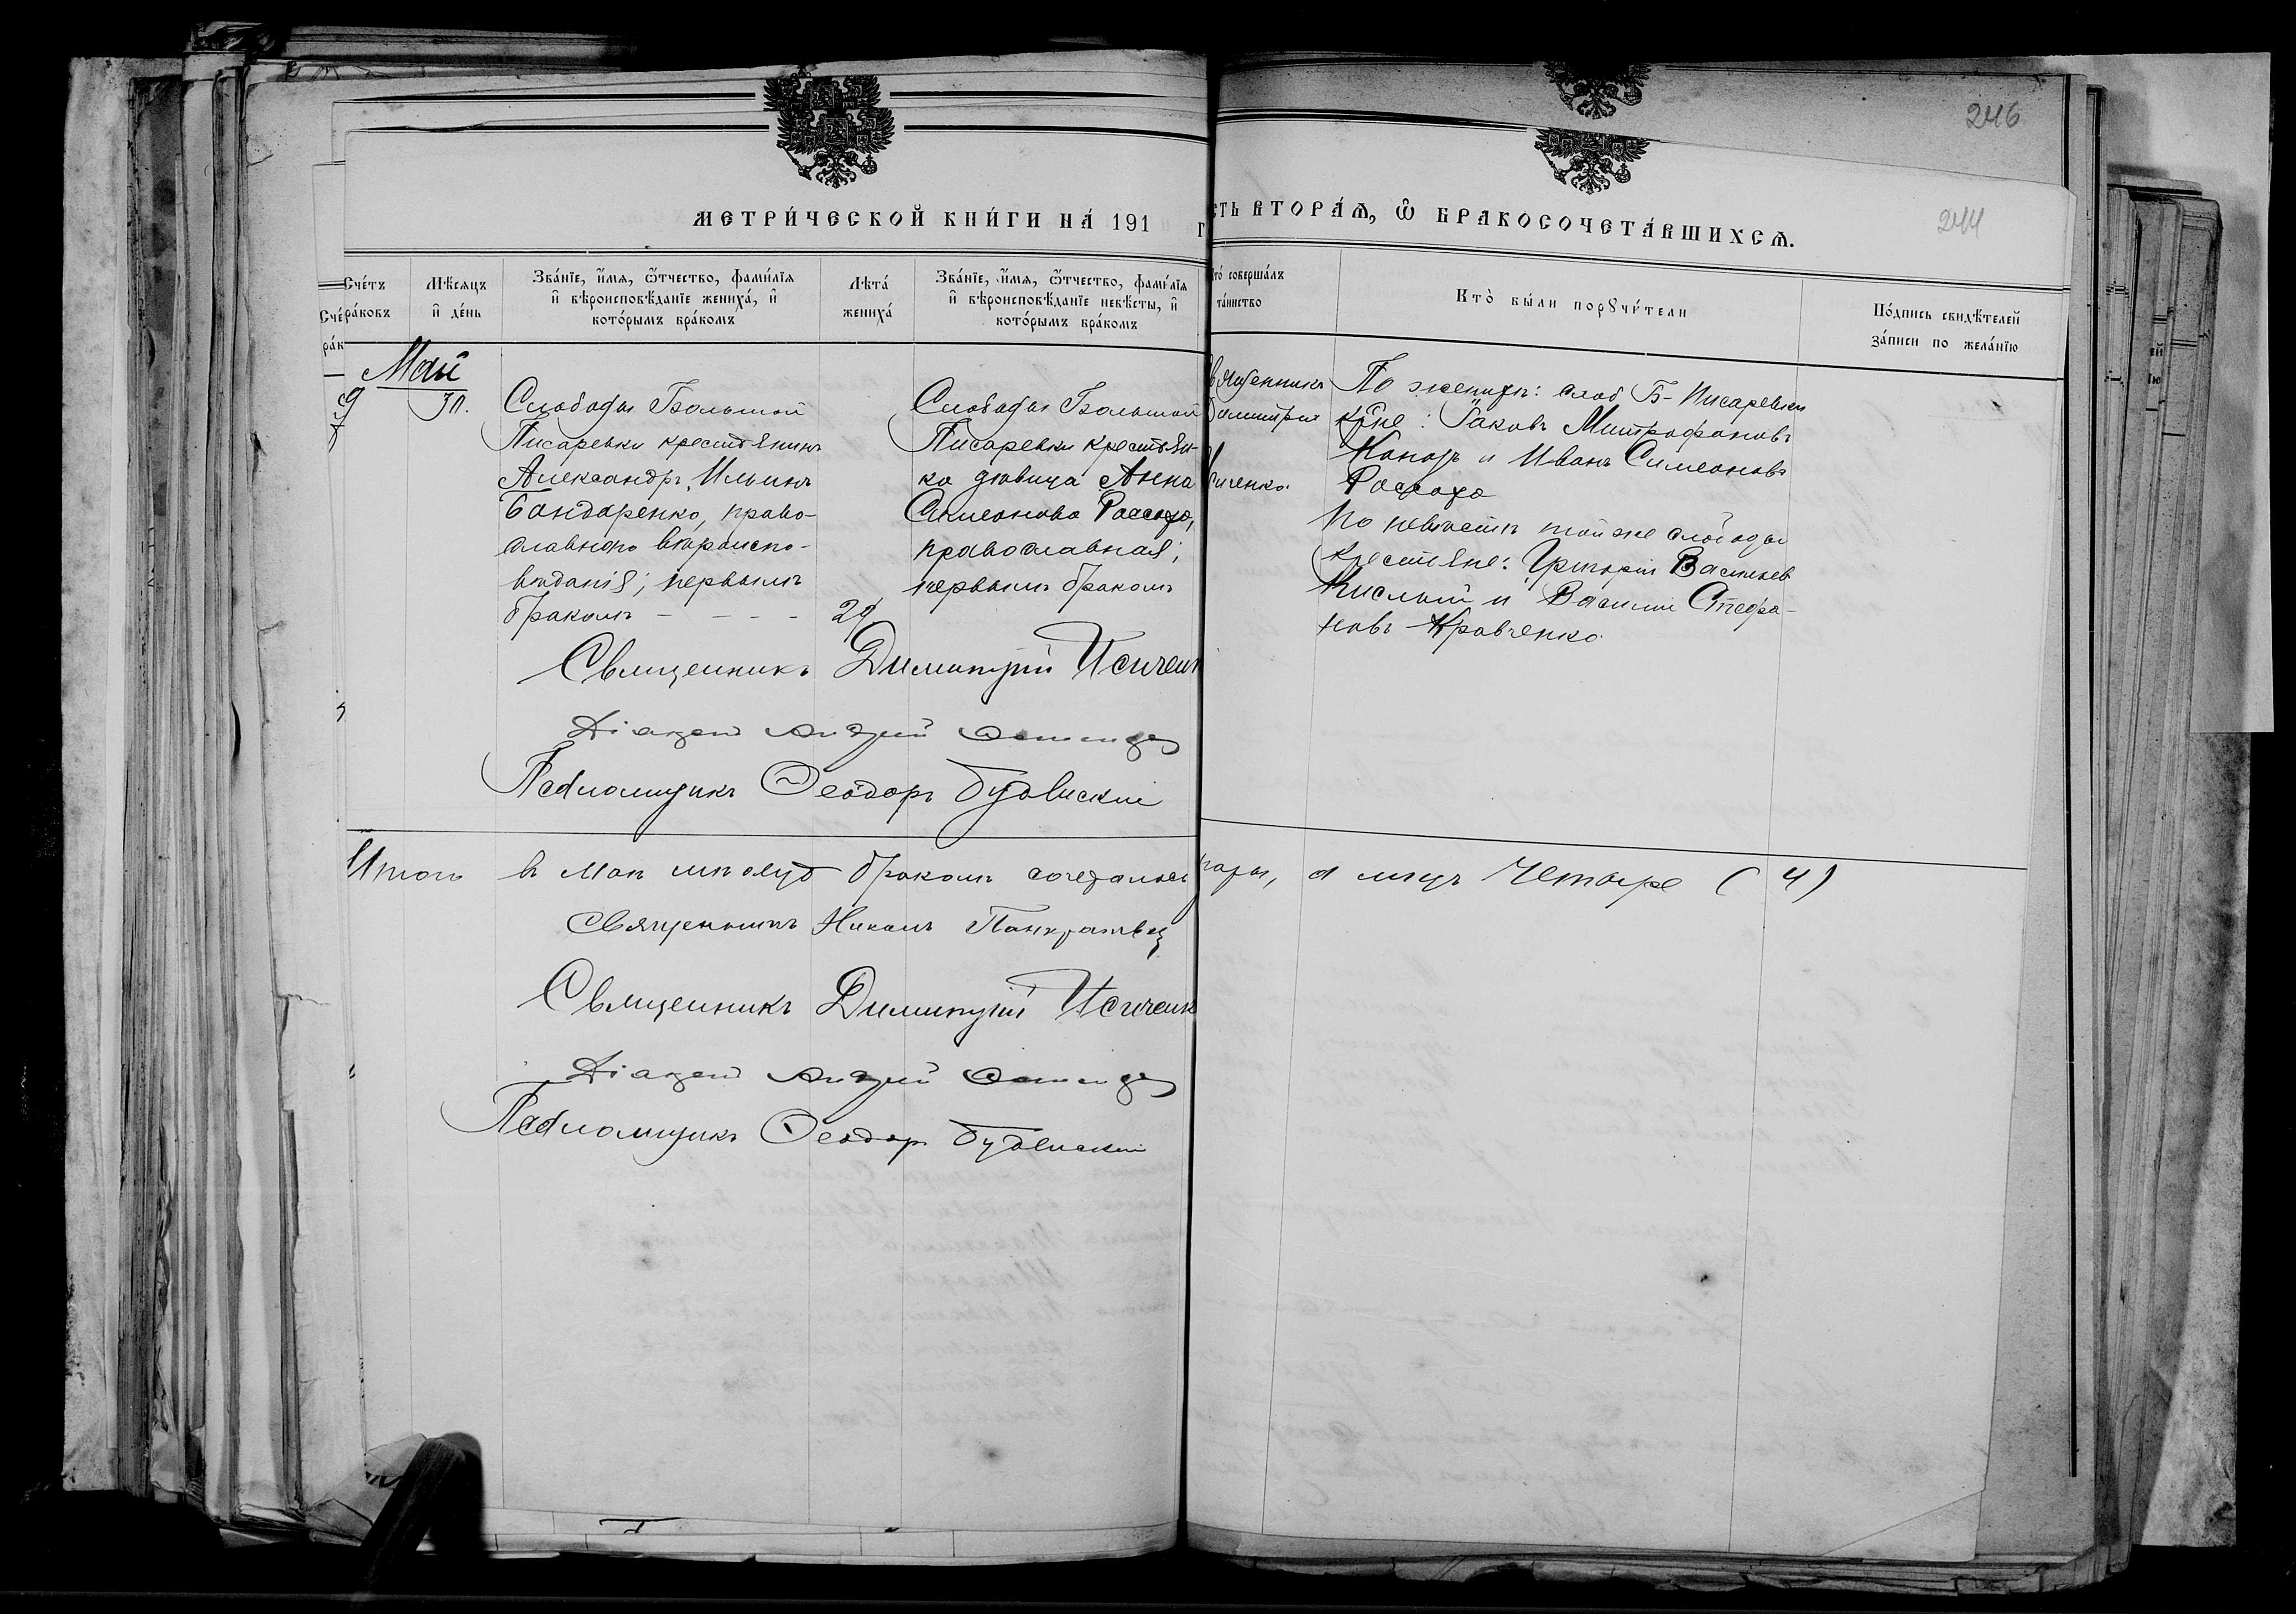 246
244
МЕТРИ́ЧЕСКОЙ КНИ́ГИ НА́ 191 г
сть ВТОРА́Ѧ, Ѡ҆ БРАКОСОЧЕТА́ВШИХСѦ.
Сче́тъ
ра́ковъ
Мѣ́сяцъ
и҆ де́нь
Зва́нїе, и҆́мѧ, ѻ҆́тчество, фами́лїѧ
и҆ вѣроисповѣ́данїе жениха́, и҆
кото́рымъ бра́комъ
Лѣта́
жениха́
Зва́нїе, и҆́мѧ, ѻ҆́тчество, фами́лїѧ
и҆ вѣроисповѣ́данїе невѣ́сты, и҆
кото́рымъ бра́комъ
то̀ соверша́лъ
та́инство
Кто̀ бы́ли порꙋчи́тели
По́дпись свидѣ́телей
за́писи по жела́нїю
Май
9
30.
Слободы Большой
Писаревки крестьянинъ
Александръ Ильинъ
Бондаренко, право-
славнаго вѣроиспо-
вѣданія; первымъ
бракомъ - - - -
20
Слободы Большой
Писаревки крестьян-
ка дѣвица Анна
Симеонова Рассоха,
православная;
первымъ бракомъ
вященникъ
Димитрій
Исиченко.
По женихѣ: слоб Б-Писаревки
кр̃не: Іаковъ Митрофановъ
Кононъ и Иванъ Симеоновъ
Рассоха
По невѣстѣ той же слободы
крестьяне: Григорій Васильев
Кислый и Василій Стефа-
новъ Кравченко.
Священникъ Димитрій Исиченк
Діаконъ Андрей
Псаломщикъ Ѳеодоръ Будянскій
Итого в Маѣ мѣсяцѣ бракомъ сочетались пары, а лицъ Четыре (4)
Священникъ Никол Панкратьев
Священникъ Димитрій Исиченк
Діаконъ Андрей
Псаломщикъ Ѳеодоръ Будянскій